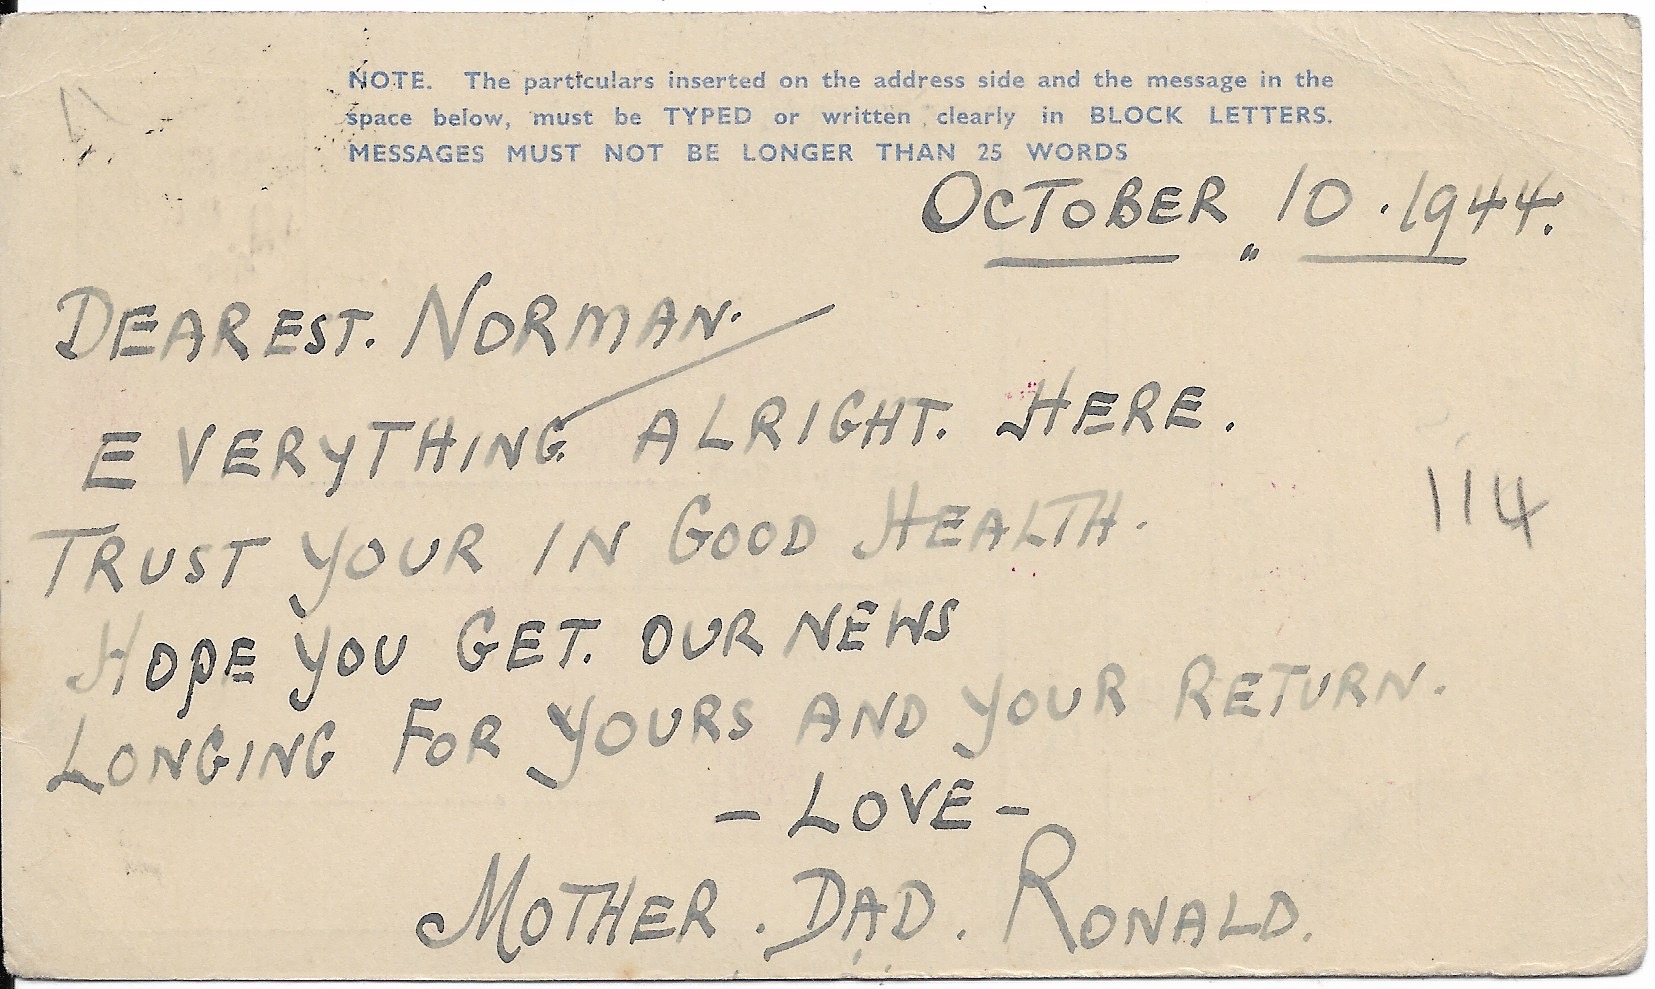 NOTE. The particulars inserted on the address side and the message in the
space below, must be TYPED or written clearly in BLOCK LETTERS.
MESSAGES MUST NOT BE LONGER THAN 25 WORDS
OCTOBER 10. 1944.
DEAREST. NORMAN.
EVERYTHING ALRIGHT. HERE.
TRUST YOUR IN GOOD HEALTH.
114
HOPE YOU GET. OUR NEWS
LONGING FOR YOURS AND YOUR RETURN.
- LOVE -
MOTHER. DAD. RONALD.